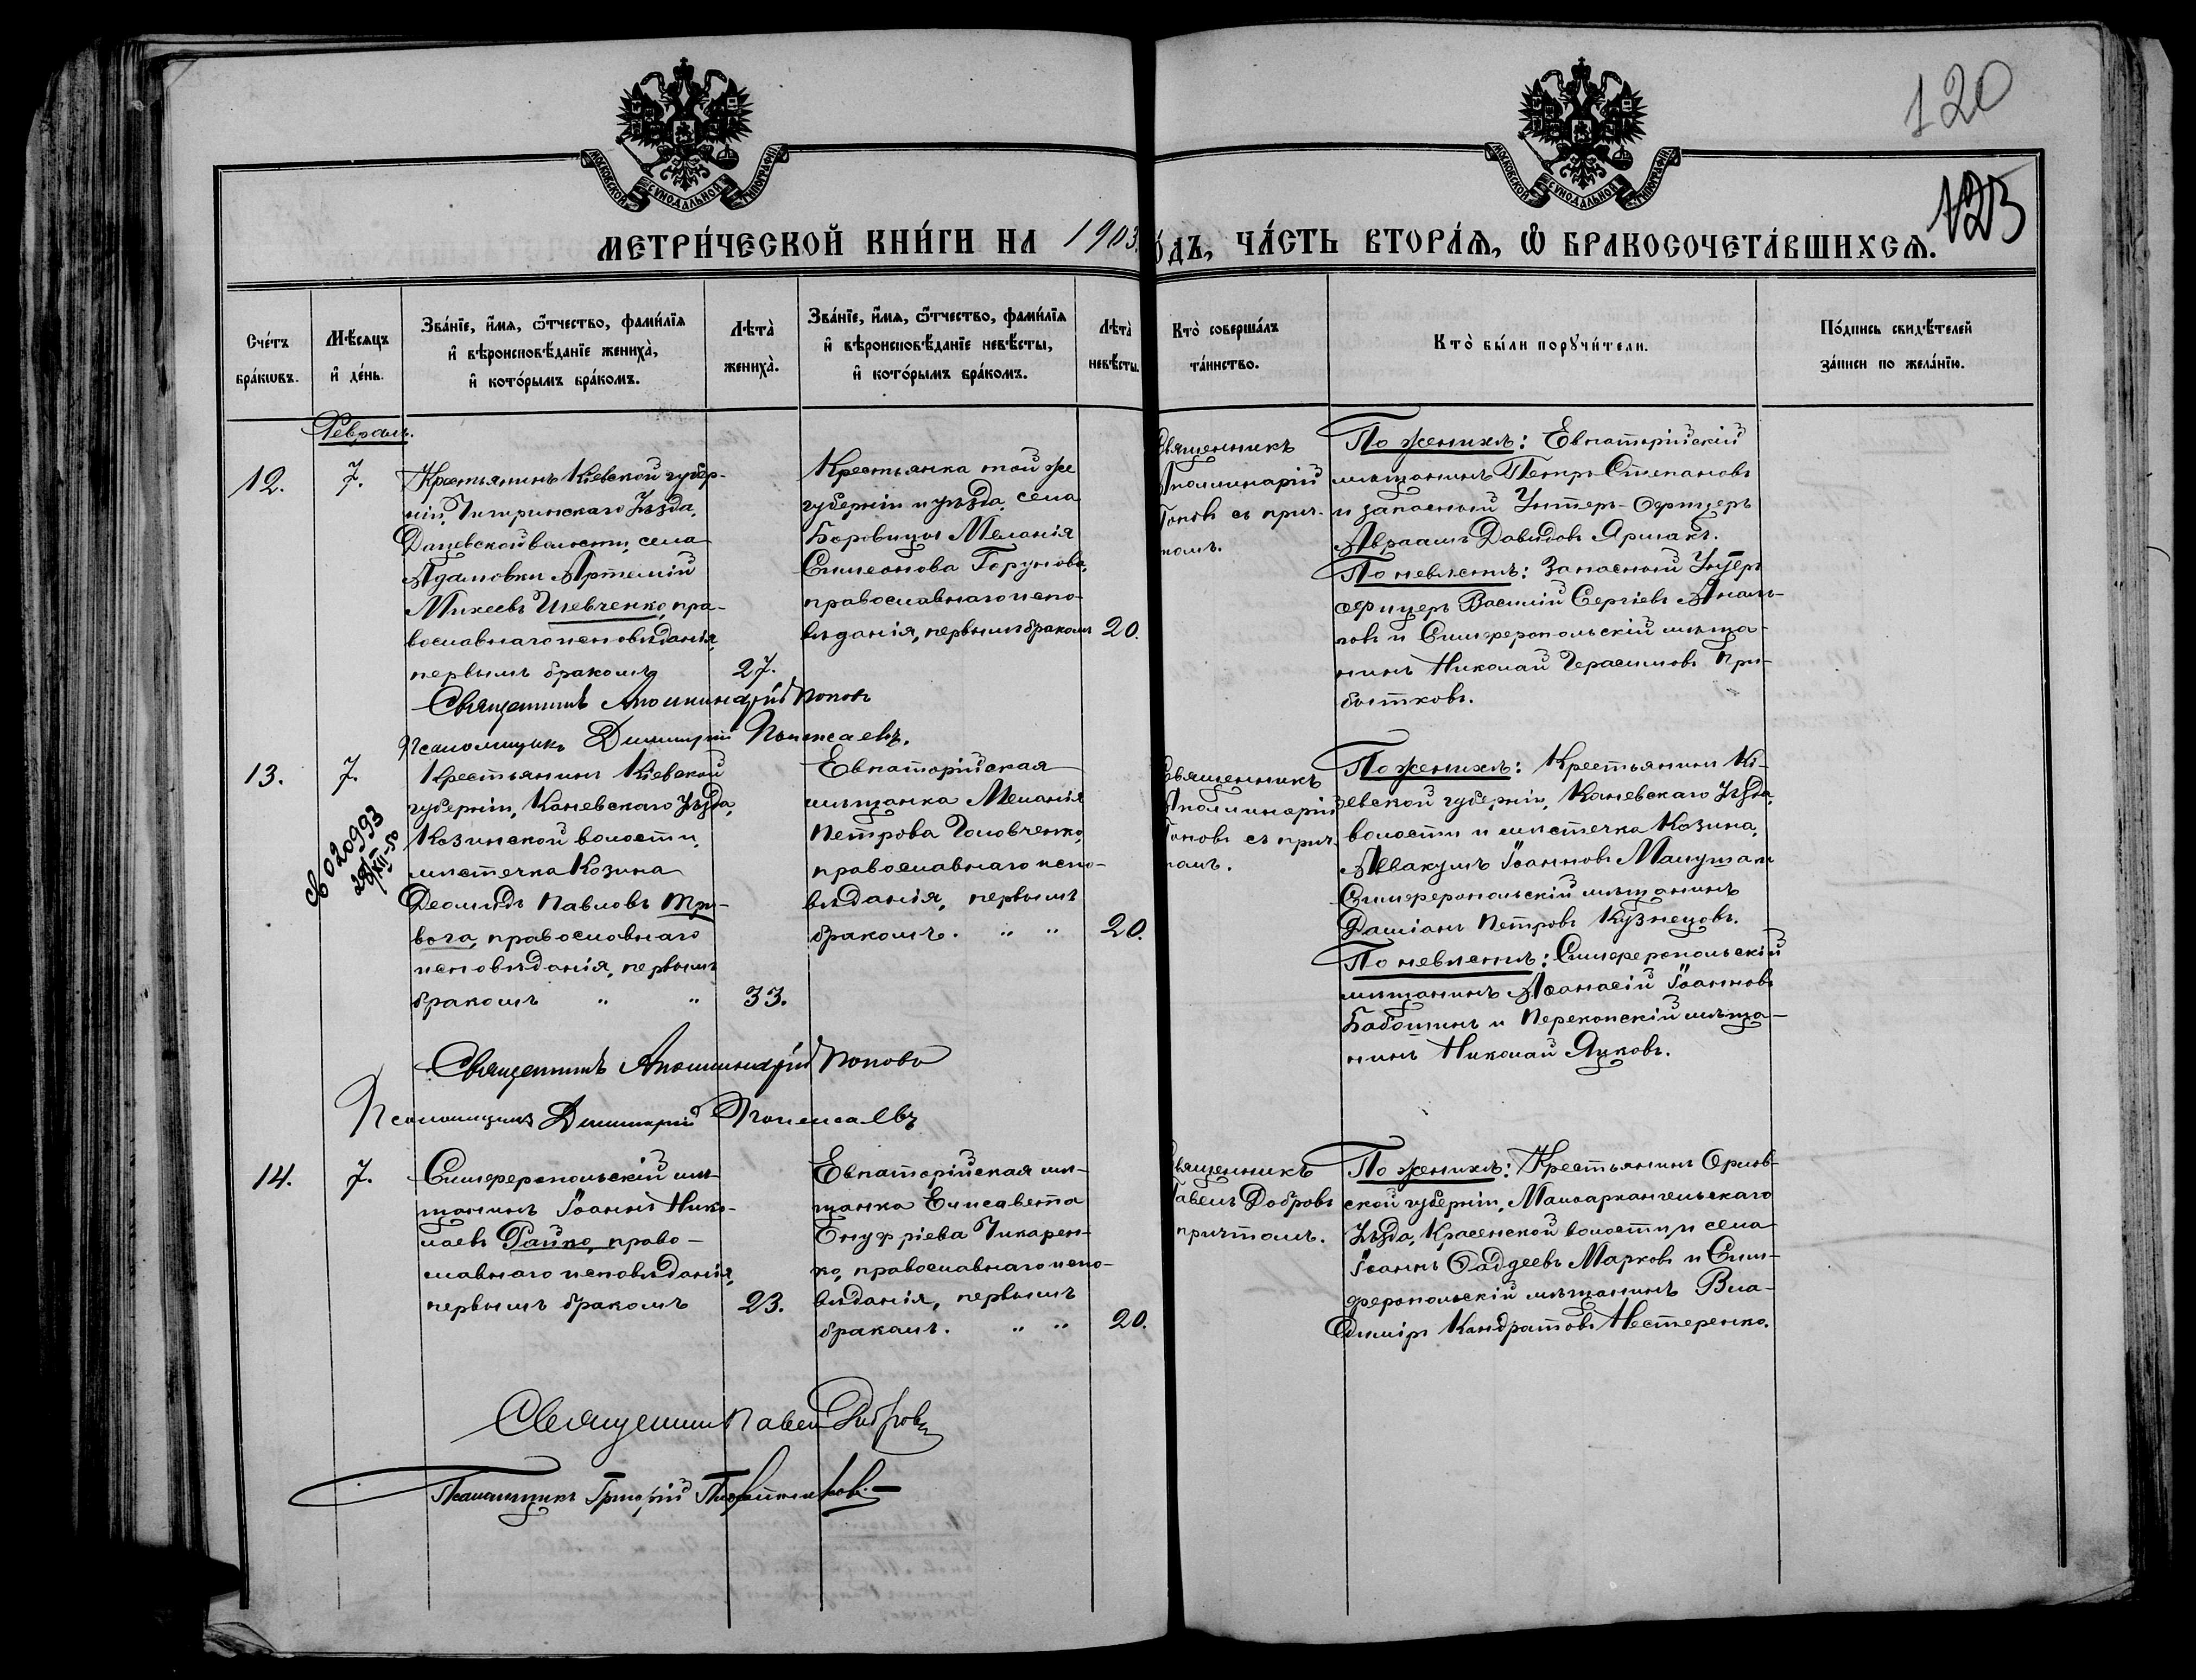 120
123
МОСКОВСКОЙ СѴНОДАЛЬНОЙ ТИПОГРАФІИ
МОСКОВСКОЙ СѴНОДАЛЬНОЙ ТИПОГРАФІИ
МЕТРИ́ЧЕСКОЙ КНИ́ГИ НА 1903 ГО́ДЪ, ЧА́СТЬ ВТОРА́Я, Ѽ БРАКОСОЧЕТА́ВШИХСЯ.
Сче́тъ бра́кѡвъ.
Мѣ́сяцъ и҆ де́нь.
Зва́нїе, и҆́мя, ѻ҆́тчество, фами́лїя и҆ вѣроисповѣ́данїе жениха̀, и҆ кото́рымъ бра́комъ.
Лѣта̀ жениха̀.
Зва́нїе, и҆́мя, ѻ҆́тчество, фами́лїя и҆ вѣроисповѣ́данїе невѣ́сты, и҆ кото́рымъ бра́комъ.
Лѣта̀ невѣ́сты.
Кто̀ соверша́лъ та́инство.
Кто̀ бы́ли порꙋчи́тели.
По́дпись свидѣ́телей за́писи по жела́нїю.
Февраль.
12.
7.
Крестьянинъ Кіевской губер-
ніи, Чигиринскаго Уѣзда,
волости, села
Адамовки Артемій
Михеевъ Шевченко, пра-
вославнаго исповѣданія,
первымъ бракомъ
27.
Крестьянка той же
губерніи и уѣзда, села
Боровицы Меланія
Симеонова Горунова,
православнаго испо-
вѣданія, первымъ бракомъ
20.
Священникъ
Аполлинарій
Поповъ съ прич-
томъ.
По женихѣ: Евпаторійскій
мѣщанинъ Петръ Степановъ
и запасный Унтеръ-Офицеръ
Авраамъ Давидовъ Ярмакъ.
По невѣстѣ: Запасный Унтеръ
офицеръ Василій Сергіевъ
и Симферопольскій мѣща-
нинъ Николай Герасимовъ При-
бытковъ.
Священникъ Аполлинарій Поповъ
Псаломщикъ Димитрій
13.
7.
св 020993
Крестьянинъ Кіевской
губерніи, Каневскаго Уѣзда,
Козинской волости,
мѣстечка Козина
Деомидъ Павловъ Три-
вога, православнаго
исповѣданія, первымъ
бракомъ " "
33.
Евпаторійская
мѣщанка Меланія
Петрова Головченко,
православнаго испо-
вѣданія, первымъ
бракомъ. " "
20.
Священникъ
Аполлинарій
Поповъ съ прич-
томъ.
По женихѣ: Крестьянинъ Кі-
евской губерніи, Каневскаго Уѣзда,
волости и мѣстечка Козина,
Аввакумъ Іоанновъ
Симферопольскій мѣщанинъ
Даміанъ Петровъ Кузнецовъ.
По невѣстѣ: Симферопольскій
мѣщанинъ Аѳанасій Іоанновъ
Бабошинъ и Перекопскій мѣща-
нинъ Николай Яцковъ.
Священникъ Аполлинарій Поповъ
Псаломщикъ Димитрій
14.
7.
Симферопольскій мѣ-
щанинъ Іоаннъ Нико-
лаевъ Гайко, право-
славнаго исповѣданія,
первымъ бракомъ
23.
Евпаторійская мѣ-
щанка Елисавета
Онуфріева Чикарен-
ко, православнаго испо-
вѣданія, первымъ
бракомъ. " "
20.
Священникъ
Павелъ Добровъ
причтомъ.
По женихѣ: Крестьянинъ Орлов-
ской губерніи, Малоархангельскаго
Уѣзда, Красенской волости, и села
Іоаннъ Ѳаддеевъ Марковъ и Сим-
феропольскій мѣщанинъ Вла-
диміръ Кондратовъ Нестеренко.
Священникъ Павелъ Добровъ
Псаломщикъ Григорій